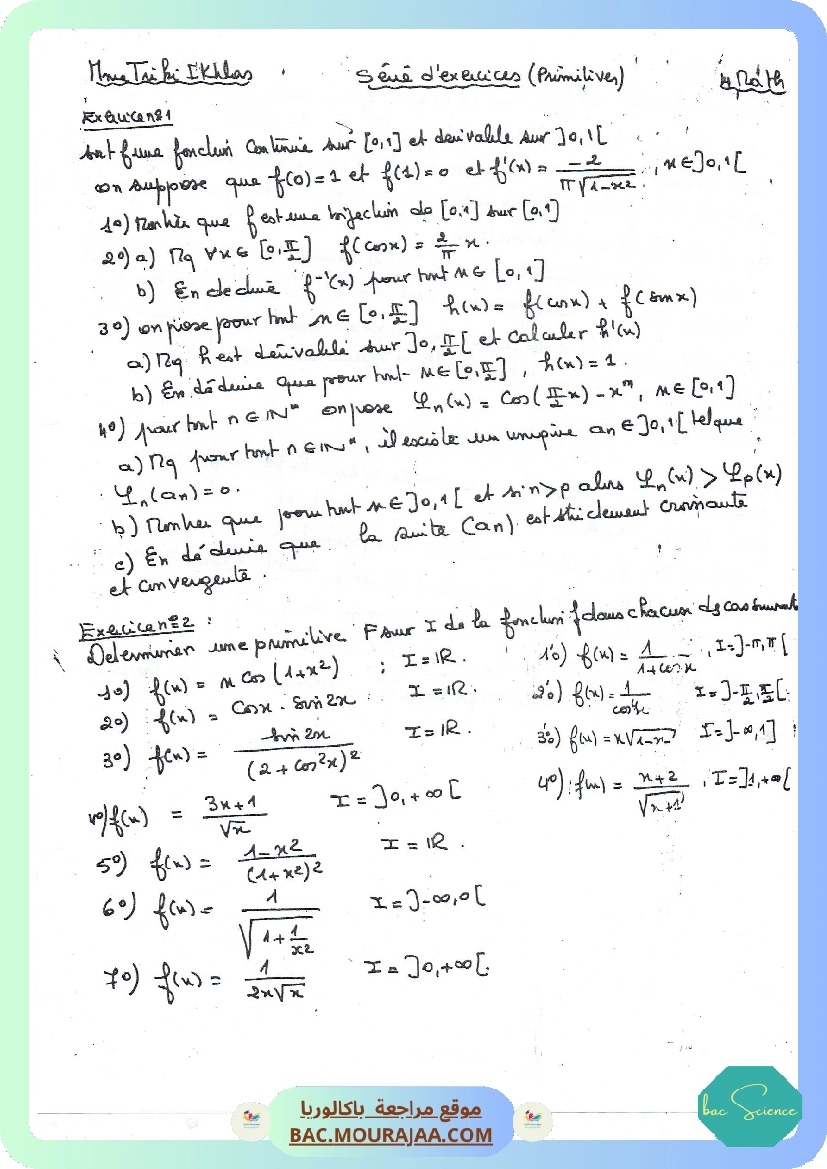 Mme Triki Ikhlas Série d'exercices (Primitives) 4 Math
Exercice n°1
Soit f une fonction continue sur [0,1] et dérivable sur ]0,1[
on suppose que f(0)=1 et f(1)=0 et f'(x) = -2/(π√(1-x²)), x∈]0,1[
1°) Montrer que f est une bijection de [0,1] sur [0,1]
2°) a) Mq ∀x∈[0,π/2] f(cosx) = 2/π x.
b) En déduire f⁻¹(x) pour tout x∈[0,1]
3°) on pose pour tout x∈[0,π/2] h(x) = f(cosx) + f(sinx)
a) Mq h est dérivable sur ]0,π/2[ et calculer h'(x)
b) En déduire que pour tout x∈[0,π/2], h(x) = 1.
4°) pour tout n∈ℕ* on pose φn(x) = cos(π/2 x) - xⁿ, x∈[0,1]
a) Mq pour tout n∈ℕ*, il existe un unique an∈]0,1[ tel que
φn(an) = 0.
b) Montrer que pour tout x∈]0,1[ et si n>p alors φn(x) > φp(x)
c) En déduire que la suite (an) est strictement croissante
et convergente.
Exercice n°2 :
Déterminer une primitive F sur I de la fonction f dans chacun des cas suivants
1°) f(x) = x cos(1+x²) ; I = ℝ.
2°) f(x) = cosx . sin2x I = ℝ.
3°) f(x) = sin2x/(2+cos²x)² I = ℝ.
4°) f(x) = (3x+1)/√x I = ]0,+∞[
5°) f(x) = (1-x²)/(1+x²)² I = ℝ.
6°) f(x) = 1/√(1+1/x²) I = ]-∞,0[
7°) f(x) = 1/(2x√x) I = ]0,+∞[.
1'°) f(x) = 1/(1+cosx), I = ]-π,π[
2'°) f(x) = 1/cos⁴x I = ]-π/2,π/2[
3'°) f(x) = x√(1-x) I = ]-∞,1]
4°) f(x) = (x+2)/√(x+1), I = ]1,+∞[
موقع مراجعة باكالوريا
BAC.MOURAJAA.COM
bac Science